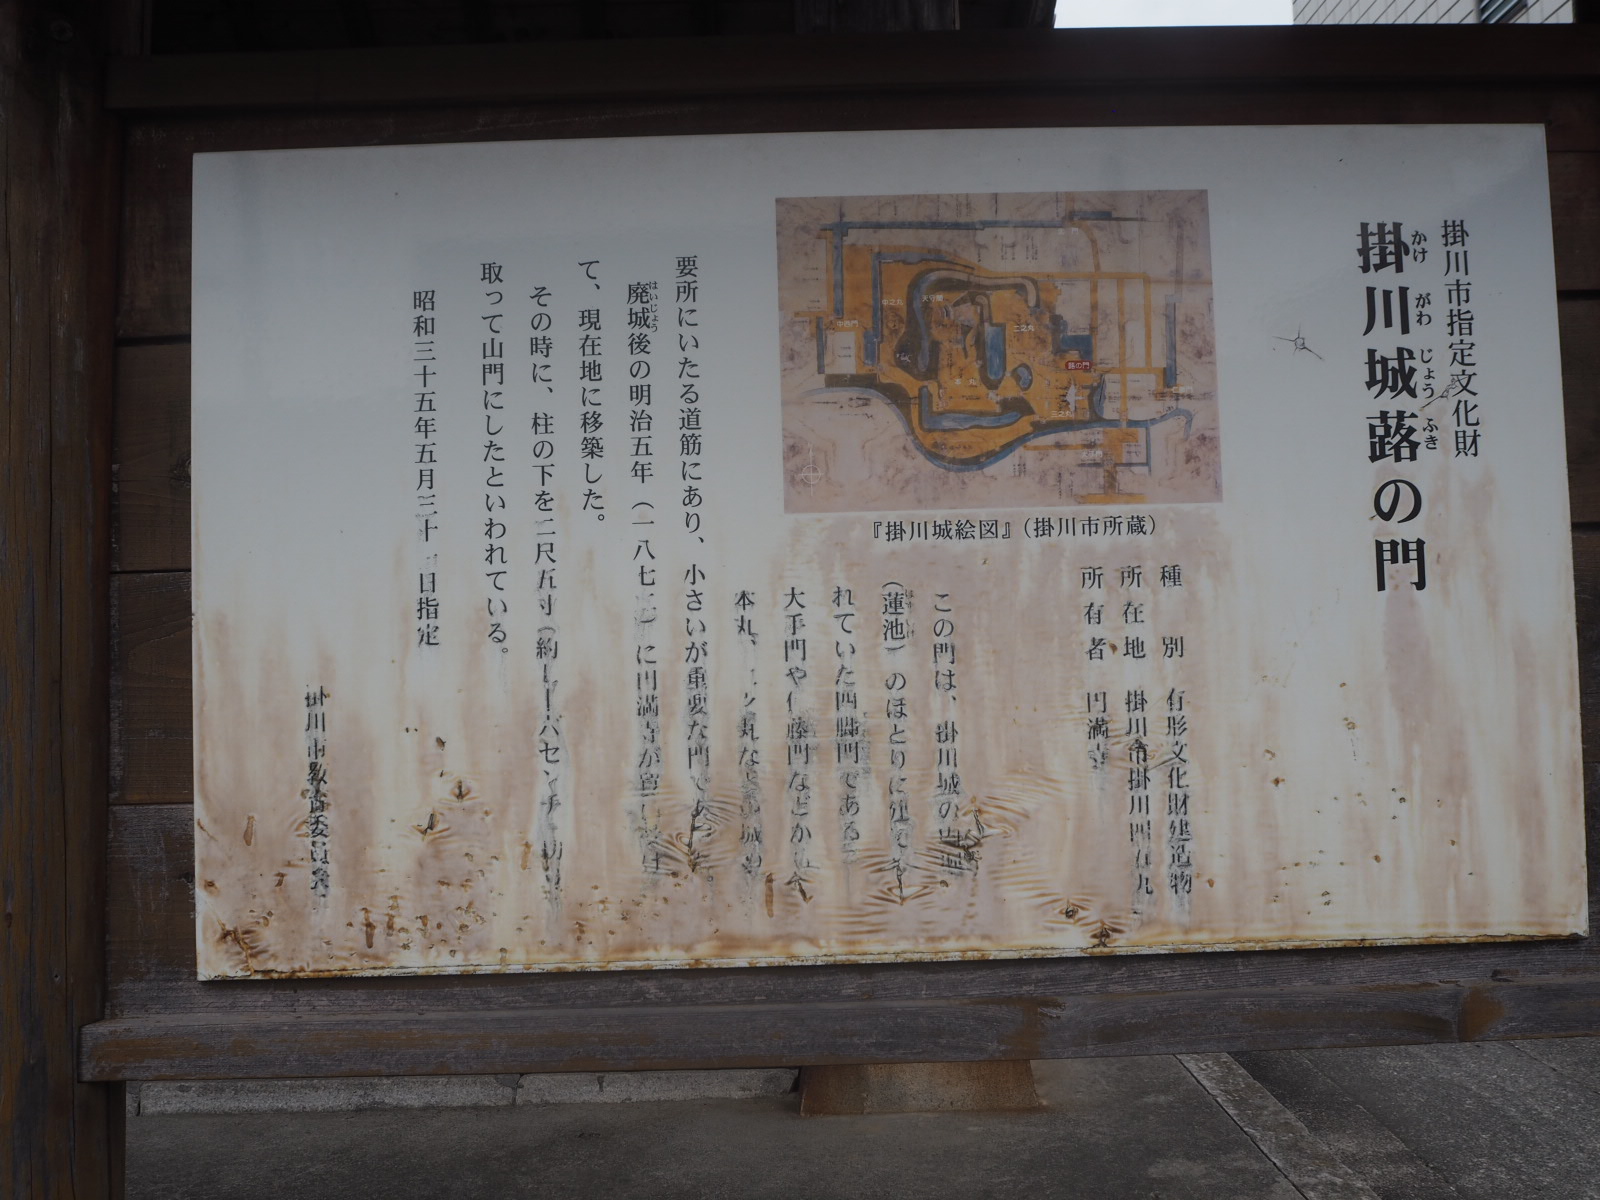 掛川市指定文化財
掛川城蕗の門
かけ がわ じょう ふき
『掛川城絵図』（掛川市所蔵）
種 別 有形文化財建造物
所在地 掛川市掛川
所有者 円満寺
この門は、掛川城の
（蓮池）のほとりに建て
れていた四脚門である。
大手門や仁藤門などから
本丸、二ノ丸など
要所にいたる道筋にあり、小さいが重要な門であった。
廃城後の明治五年（一八七二）に円満寺が買い
はいじょう
て、現在地に移築した。
その時に、柱の下を二尺五寸（約 センチ 切り
取って山門にしたといわれている。
昭和三十五年五月三十 日指定
掛川市教育委員会
天守閣
中之丸
中西門
二之丸
本丸
蕗の門
三之丸